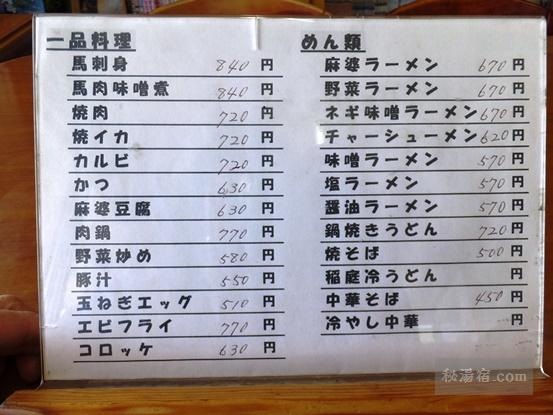 一品料理
馬刺身 840 円
馬肉味噌煮 840 円
焼肉 720 円
焼イカ 720 円
カルビ 720 円
かつ 630 円
麻婆豆腐 630 円
肉鍋 770 円
野菜炒め 580 円
豚汁 550 円
玉ねぎエッグ 510 円
エビフライ 770 円
コロッケ 630 円
めん類
麻婆ラーメン 670 円
野菜ラーメン 670 円
ネギ味噌ラーメン 670 円
チャーシューメン 620 円
味噌ラーメン 570 円
塩ラーメン 570 円
醤油ラーメン 570 円
鍋焼きうどん 720 円
焼そば 500 円
稲庭冷うどん 円
中華そば 450 円
冷やし中華 円
秘湯宿.com